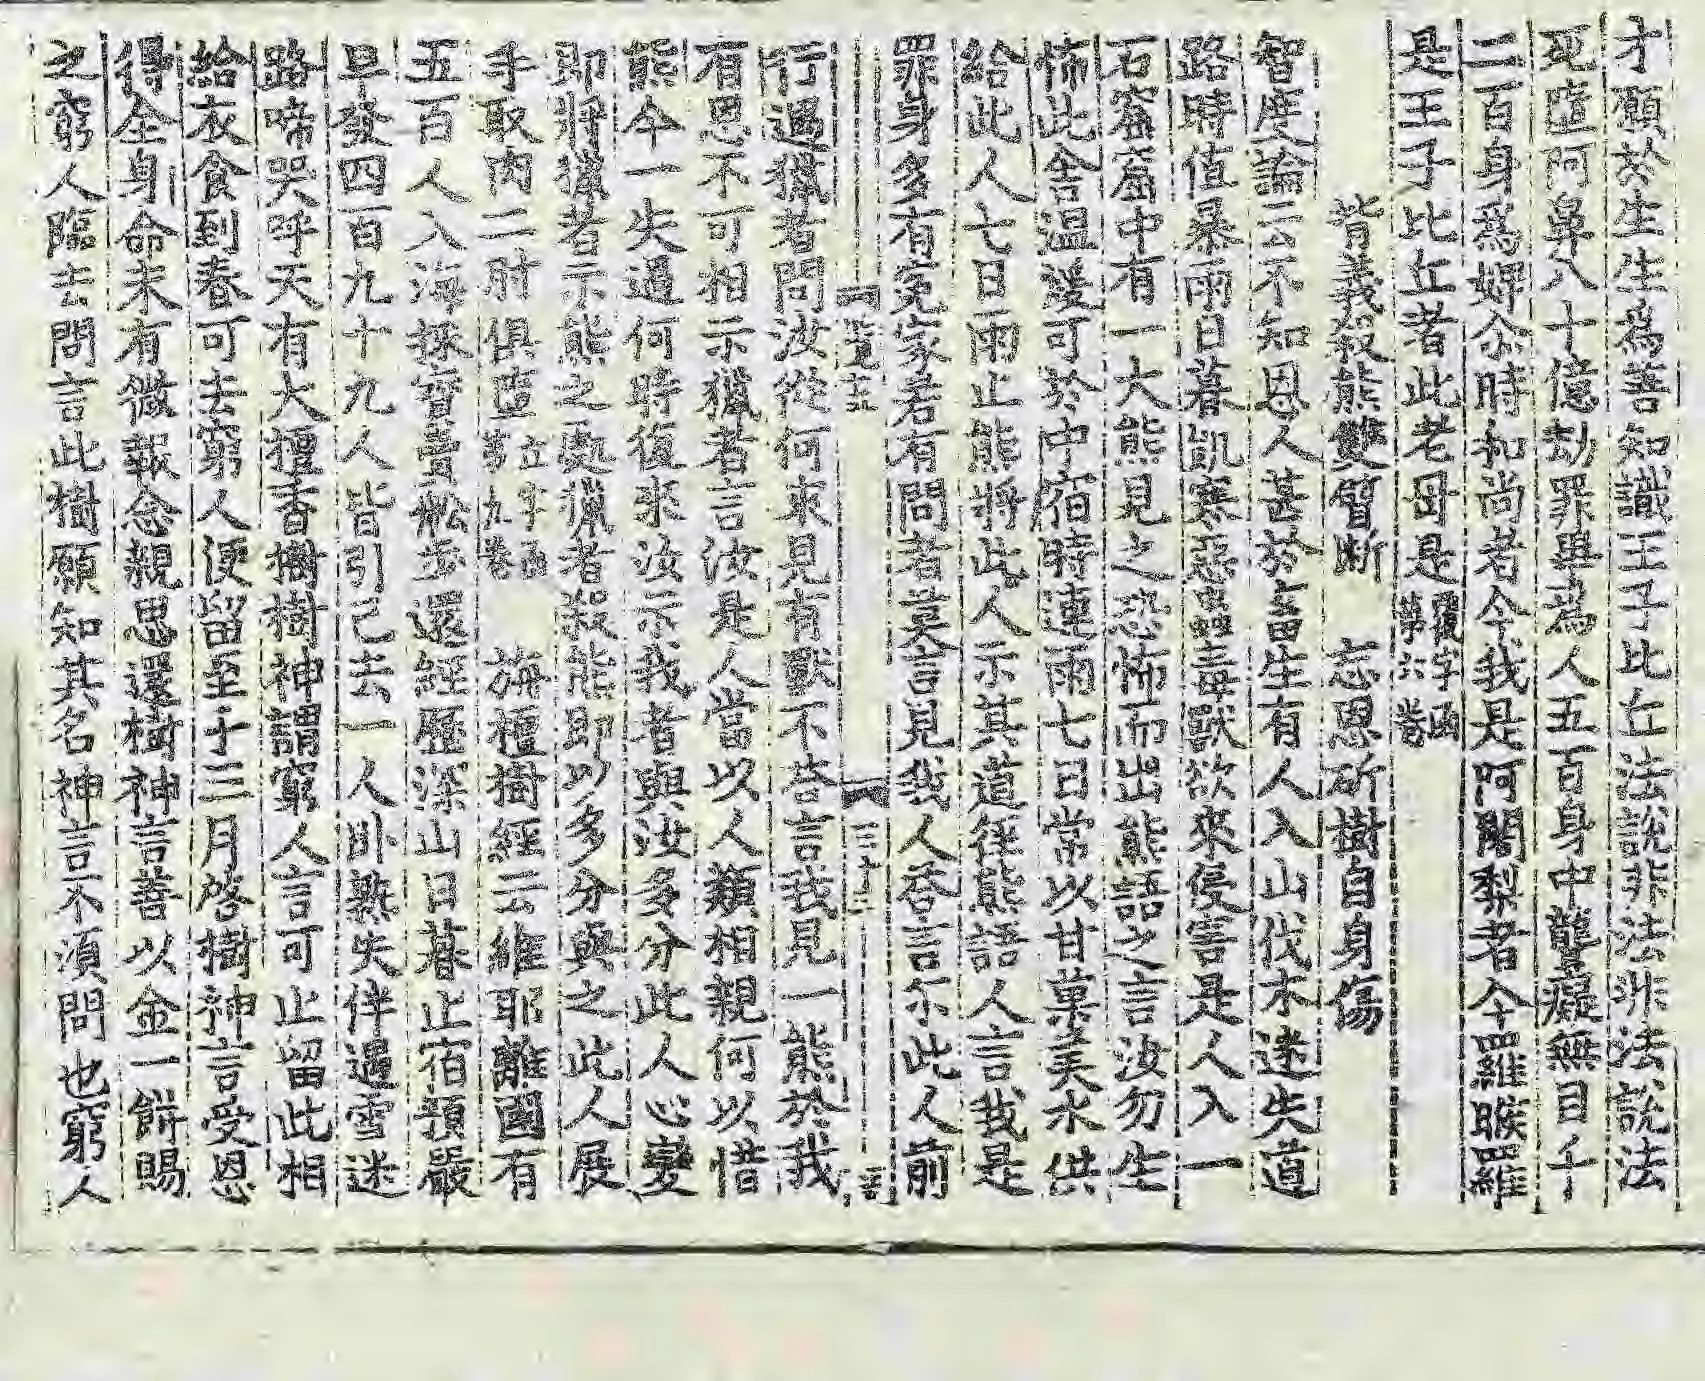 才願於生生爲善知識王子比丘法說非法非法說法
死墮阿鼻八十億劫罪畢爲人五百身中聾癡無目千
二百身爲婢尒時和尚者今我是阿闍梨者今羅睺羅
是王子比丘者此老母是 第六卷 字函
背義殺熊雙臂断 忘恩斫樹自身傷
智度論云不知恩人甚於畜生有人入山伐木迷失道
路時值暴雨日暮飢寒惡蟲毒獸欲來侵害是人入一
石窟窟中有一大熊見之恐怖而出熊語之言汝勿生
怖此舍温煖可於中宿時連雨七日常以甘菓美水供
給此人七日雨止熊將此人示其道徑熊語人言我是
罪身多有冤家若有問者莫言見我人荅言尒此人前
行遇獵者問汝從何來見有獸不荅言我見一熊於我
有恩不可相示獵者言汝是人當以人類相親何以惜
熊今一失過何時復來汝示我者與汝多分此人心變
即將獵者示熊之處獵者殺熊即以多分與之此人展
手取肉二肘俱墮 第九卷 字函 旃檀樹經云維耶離國有
五百人入海採寶賣舩步還經歷深山日暮止宿預嚴
旦發四百九十九人皆引己去一人卧熟失伴遇雪迷
路啼哭呼天有大檀香樹樹神謂窮人言可止留此相
給衣食到春可去窮人便留至于三月啓樹神言受恩
得全身命未有微報念親思還樹神言善以金一餅賜
之窮人臨去問言此樹願知其名神言不須問也窮人